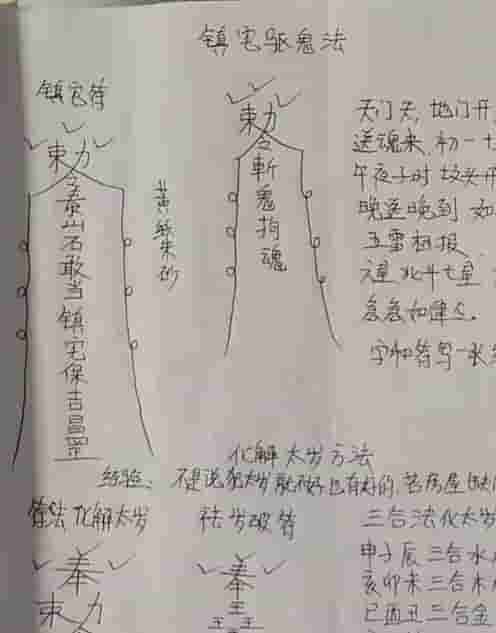 镇宅驱鬼法
镇宅符
敕令
泰山石敢当镇宅保吉昌罡
黄纸朱砂
敕令
斩鬼拘魂
天门关,地门开
送魂来,初一十
午夜子时 坟头开
晚送晚到 如
五雷相报
北斗七星
急急如律令。
字和符写一张
化解太岁方法
经验、不是说犯太岁就不好也有好的,若房屋
符法化解太岁
祛岁破符
三合法化太岁
奉
敕令
奉
王
王王
申子辰三合水
亥卯未三合木
巳酉丑三合金